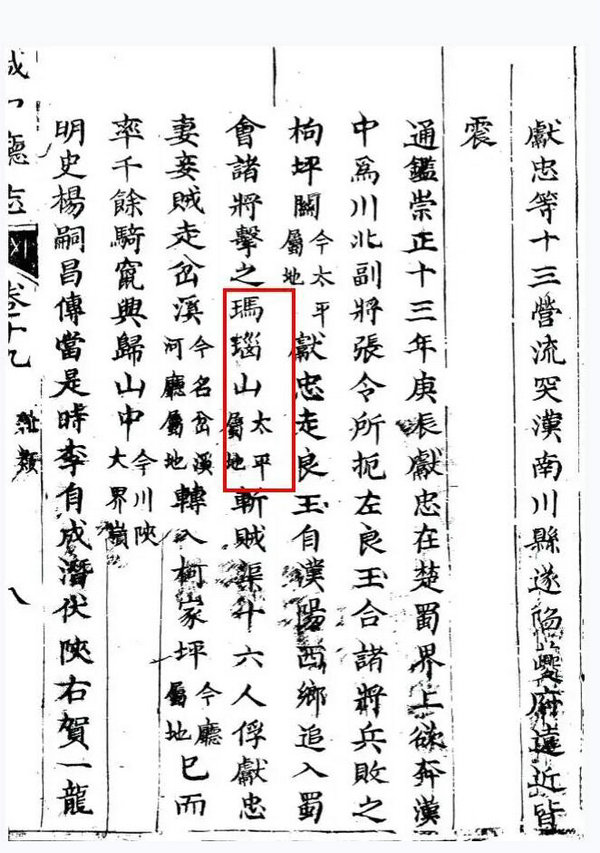 獻忠等十三營流突漢南川縣遂陷夔府遠近皆
震
通鑑崇正十三年庚辰獻忠在楚蜀界上欲奔漢
中為川北副將張令所扼左良玉合諸將兵敗之
枸坪關今太平屬地獻忠走良玉自漢陽西鄉追入蜀
會諸將擊之瑪瑙山太平屬地斬賊渠十六人俘獻忠
妻妾賊走岔溪今名岔溪河廳屬地轉入柯家坪今廳屬地已而
率千餘騎竄興歸山中今川陝大界嶺
明史楊嗣昌傳當是時李自成潛伏陝右賀一龍
廳志
卷十九
類
八